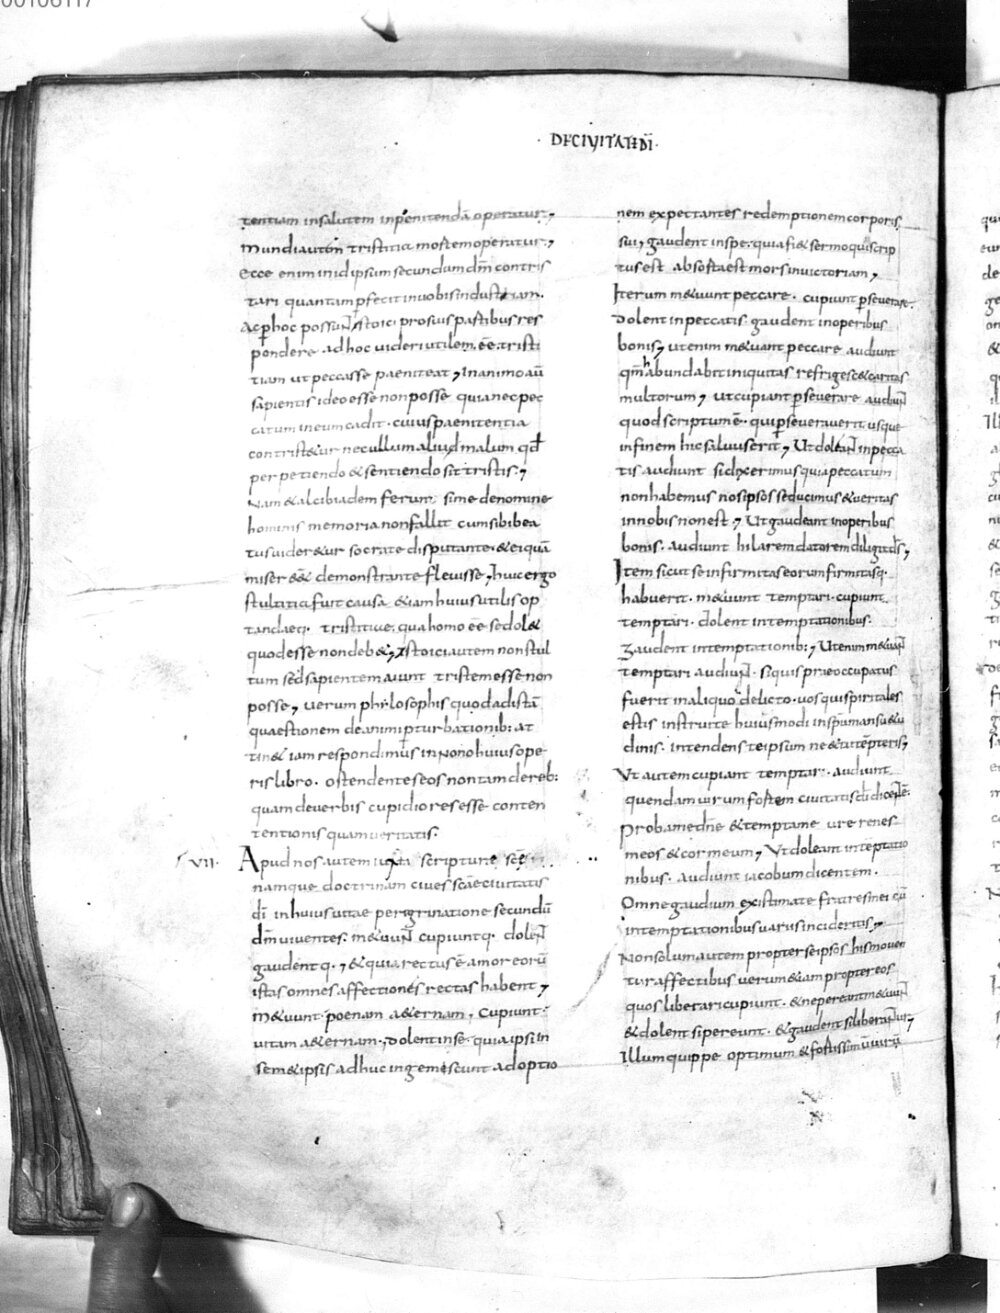 00106117
· DE CIVITATE DI ·
tentiam in salutem inpenitendā operatur;
Mundi autem tristitia mortem operatur;
Ecce enim in id ipsum secundum dm̄ contris
tari quantam pfecit in uobis industriam.
Ac p hoc possun stoici pro suis partibus res
pondere ad hoc uideri utilem. ēē tristi
tiam ut peccasse paeniteat; In animo aū
sapientis ideo esse non posse quia nec pec
catum in eum cadit. cuius paenitentia
contrist&ur nec ullum aliud malum qd
perpetiendo & sentiendo sit tristis;
Nam & alcibiadem ferunt si me de nomine
hominis memoria non fallit cum sibi bea
tus uider&ur socrate disputante. & ei quā
miser ess& demonstrante fleuisse; huic ergo
stultitia fuit causa &iam huius utilis op
tandaeq· tristitiae. qua homo ēē se dol&
quod esse non deb&; Stoici autem non stul
tum sed sapientem aiunt tristem esse non
posse; uerum philosophis quod ad istā
quaestionem de animi pturbationib: at
tin& iam respondimus in Nono huius ope
ris libro. ostendentes eos non tam de reb:
quam de uerbis cupidiores esse conten
tentionis quam ueritatis.
VII· Apud nos autem iuxta scripturas scās
namque doctrinam ciues scāe ciuitatis
dī in huius uitae peregrinatione secundū
dm̄ uiuentes. m&uun cupiuntq· dolen
gaudentq·; & quia rectus ē amor eorū
istas omnes affectiones rectas habent;
M&uunt poenam a&ernam. cupiunt
uitam a&ernam. dolent in se quia ipsi in
sem&ipsis adhuc ingemescunt adoptio
nem expectantes redemptionem corporis
sui; gaudent in spe. quia fi& sermo qui scrip
tus est absorta est mors in uictoriam;
Iterum m&uunt peccare. cupiunt pseuerare.
Dolent in peccatis. gaudent in operibus
bonis; ut enim m&uant peccare audiunt
qm̄ abundabit iniquitas refrigesc& caritas
multorum; ut cupiant pseuerare audiun
quod scriptum ē. qui pseuerauerit usque
in finem hic saluus erit; Ut dolean in pecca
tis audiunt si dixerimus quia peccatum
non habemus nos ipsos seducimus & ueritas
in nobis non est; Ut gaudeant in operibus
bonis. audiunt hilarem datorem diligit ds;
Item sicut se infirmitas eorum firmitasq·
habuerit. m&uunt temptari. cupiunt
temptari. dolent in temptationibus.
gaudent in temptationib:; Ut enim m&uan
temptari audiun. si quis praeoccupatus
fuerit in aliquo delicto. uos qui spiritales
estis instruite huiusmodi in spu mansu&u
dinis. intendens te ipsum ne & tu tēpteris;
Ut autem cupiant temptari. audiunt
quendam uirum fortem ciuitatis dī dicentē:
Proba me dne & tempta me ure renes
meos & cor meum; Ut doleant in tēptatio
nibus. audiunt iacobum dicentem.
Omne gaudium existimate fratres mei cū
in temptationibus uariis incideritis;
Non solum autem propter se ipsos his mouen
tur affectibus uerum &iam propter eos
quos liberari cupiunt. & ne pereant m&uun
& dolent si pereunt. & gaudent si liberantur;
Illum quippe optimum & fortissimū uirū